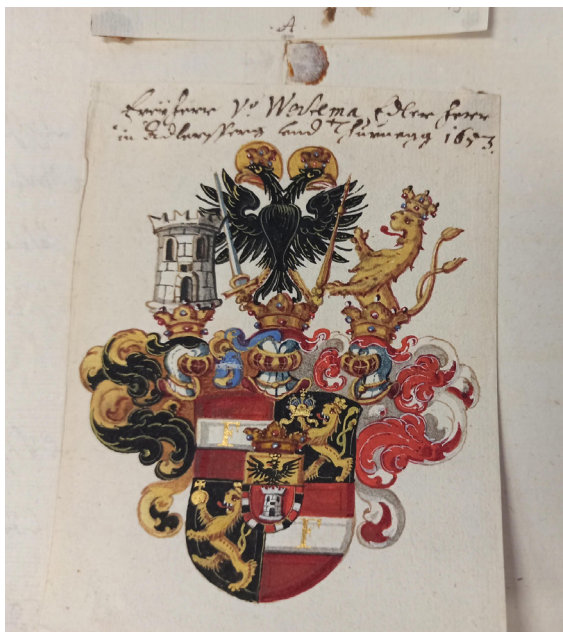 .A.
Freÿherr Vo Wertema Edler Herr
in Adlersperg und Thurnegg 1653.
F
F